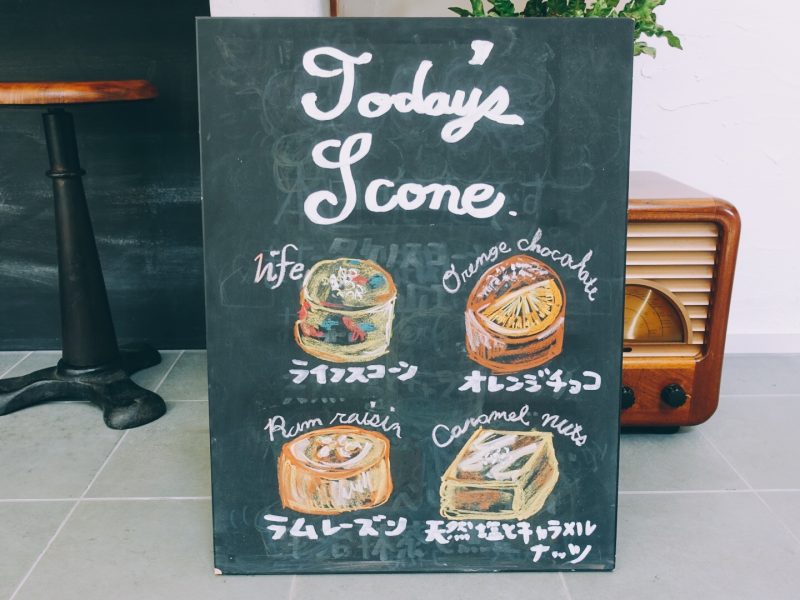 Today's
Scone.
life
ライフスコーン
Orenge chocolate
オレンジチョコ
Ram raisin
ラムレーズン
Caramel nuts
天然塩とキャラメル
ナッツ